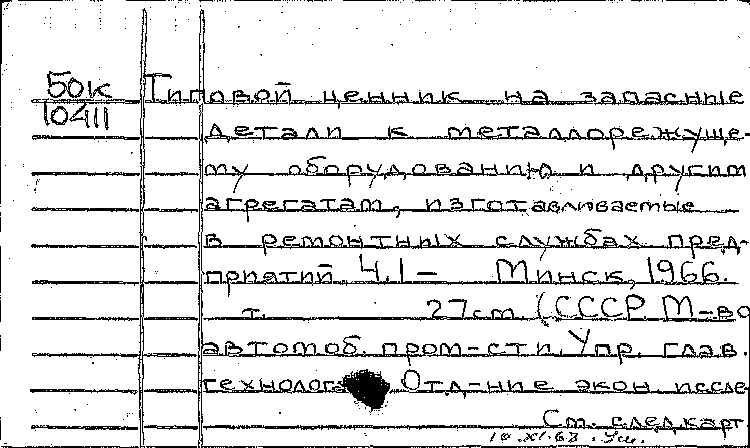 50к Типовой ценник на запасные
10411 детали к металлорежуще-
му оборудованию и другим
агрегатам, изготавливаемые
в ремонтных службах пред-
приятий Ч.1 — Минск, 1966.
т. 27см (СССР М-во
автомоб. пром-сти. Упр. глав.
технолог Отд-ние экон. иссле
См. след карт
10.XI.67.